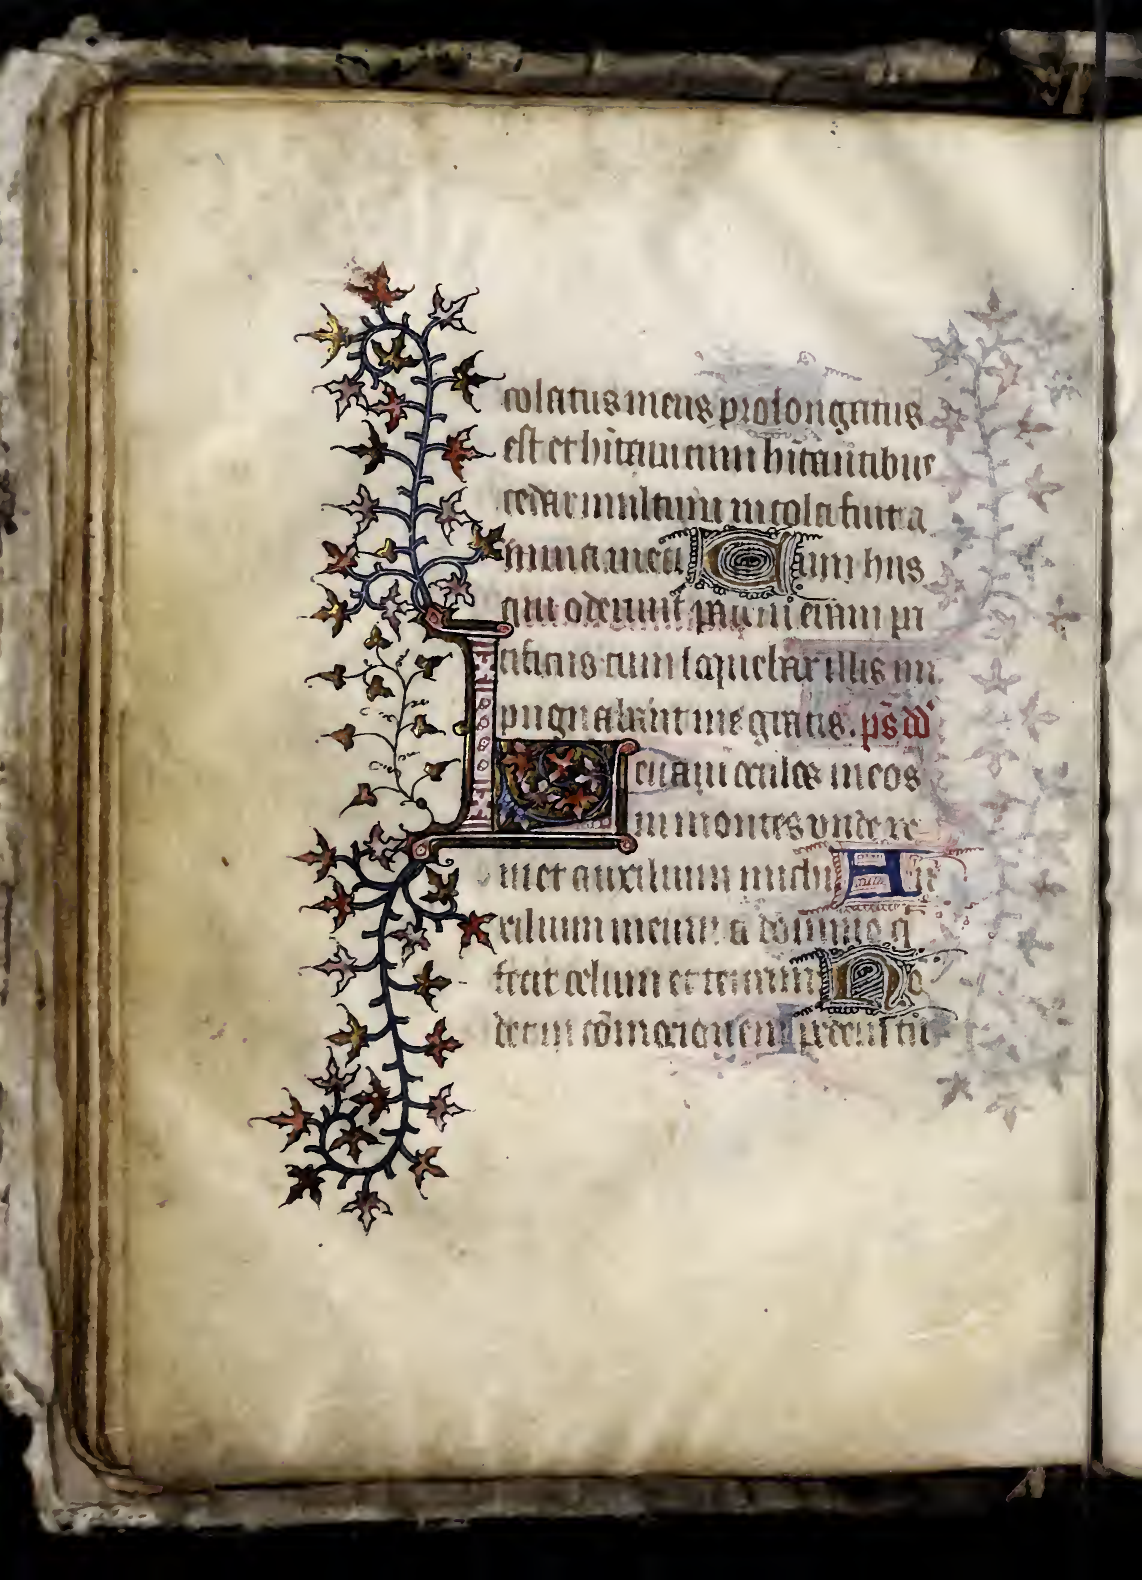 colatus meus prolongatus
est cū hītaui cum hītantibus
cedar multum incola fuit a
nima mea Cum hiis
qui oderunt pacem eram pa
cificus cum loquebar illis im
pugnabant me gratis. ps̄ dd̄
Leuaui oculos meos
in montes unde ve
niet auxilium michi Au
xilium meum a domino q
fecit celum et terram No
det in cōmocionem pedem tu